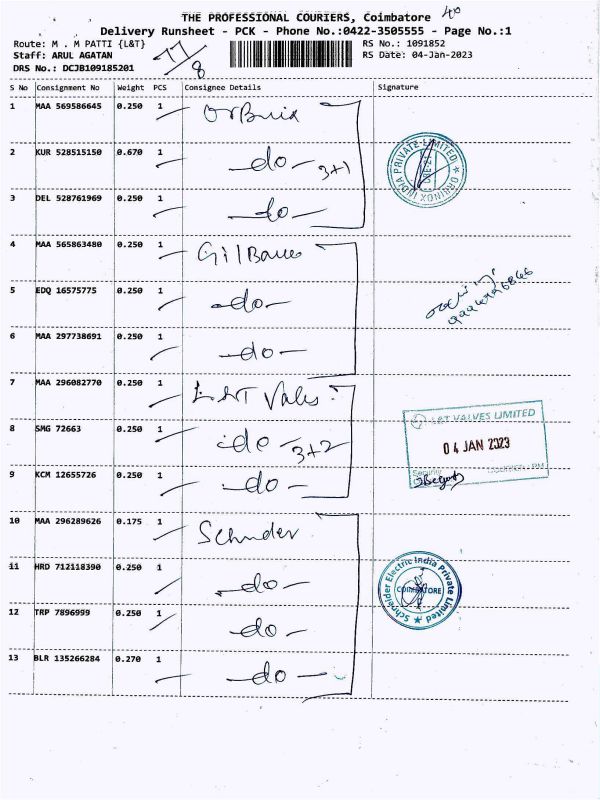 THE PROFESSIONAL COURIERS, Coimbatore 40
Delivery Runsheet - PCK - Phone No.:0422-3505555 - Page No.:1
Route: M . M PATTI {L&T} RS No.: 1091852
Staff: ARUL AGATAN 77/8 RS Date: 04-Jan-2023
DRS No.: DCJB109185201
S No Consignment No Weight PCS Consignee Details Signature
1 MAA 569586645 0.250 1
2 KUR 528515150 0.670 1 -do- 3+1
3 DEL 528761969 0.250 1 -do-
ORNINOX INDIA PRIVATE LIMITED
4 MAA 565863480 0.250 1 GilBarco
5 EDQ 16575775 0.250 1 -do-
6 MAA 297738691 0.250 1 -do-
7 MAA 296082770 0.250 1 L&T Valves
8 SMG 72663 0.250 1 -do- 3+2
9 KCM 12655726 0.250 1 -do-
L&T VALVES LIMITED
04 JAN 2023
Security
10 MAA 296289626 0.175 1 Schnider
11 HRD 712118390 0.250 1 -do-
12 TRP 7896999 0.250 1 -do-
13 BLR 135266284 0.270 1 -do-
Schneider Electric India Private Limited
COIMBATORE